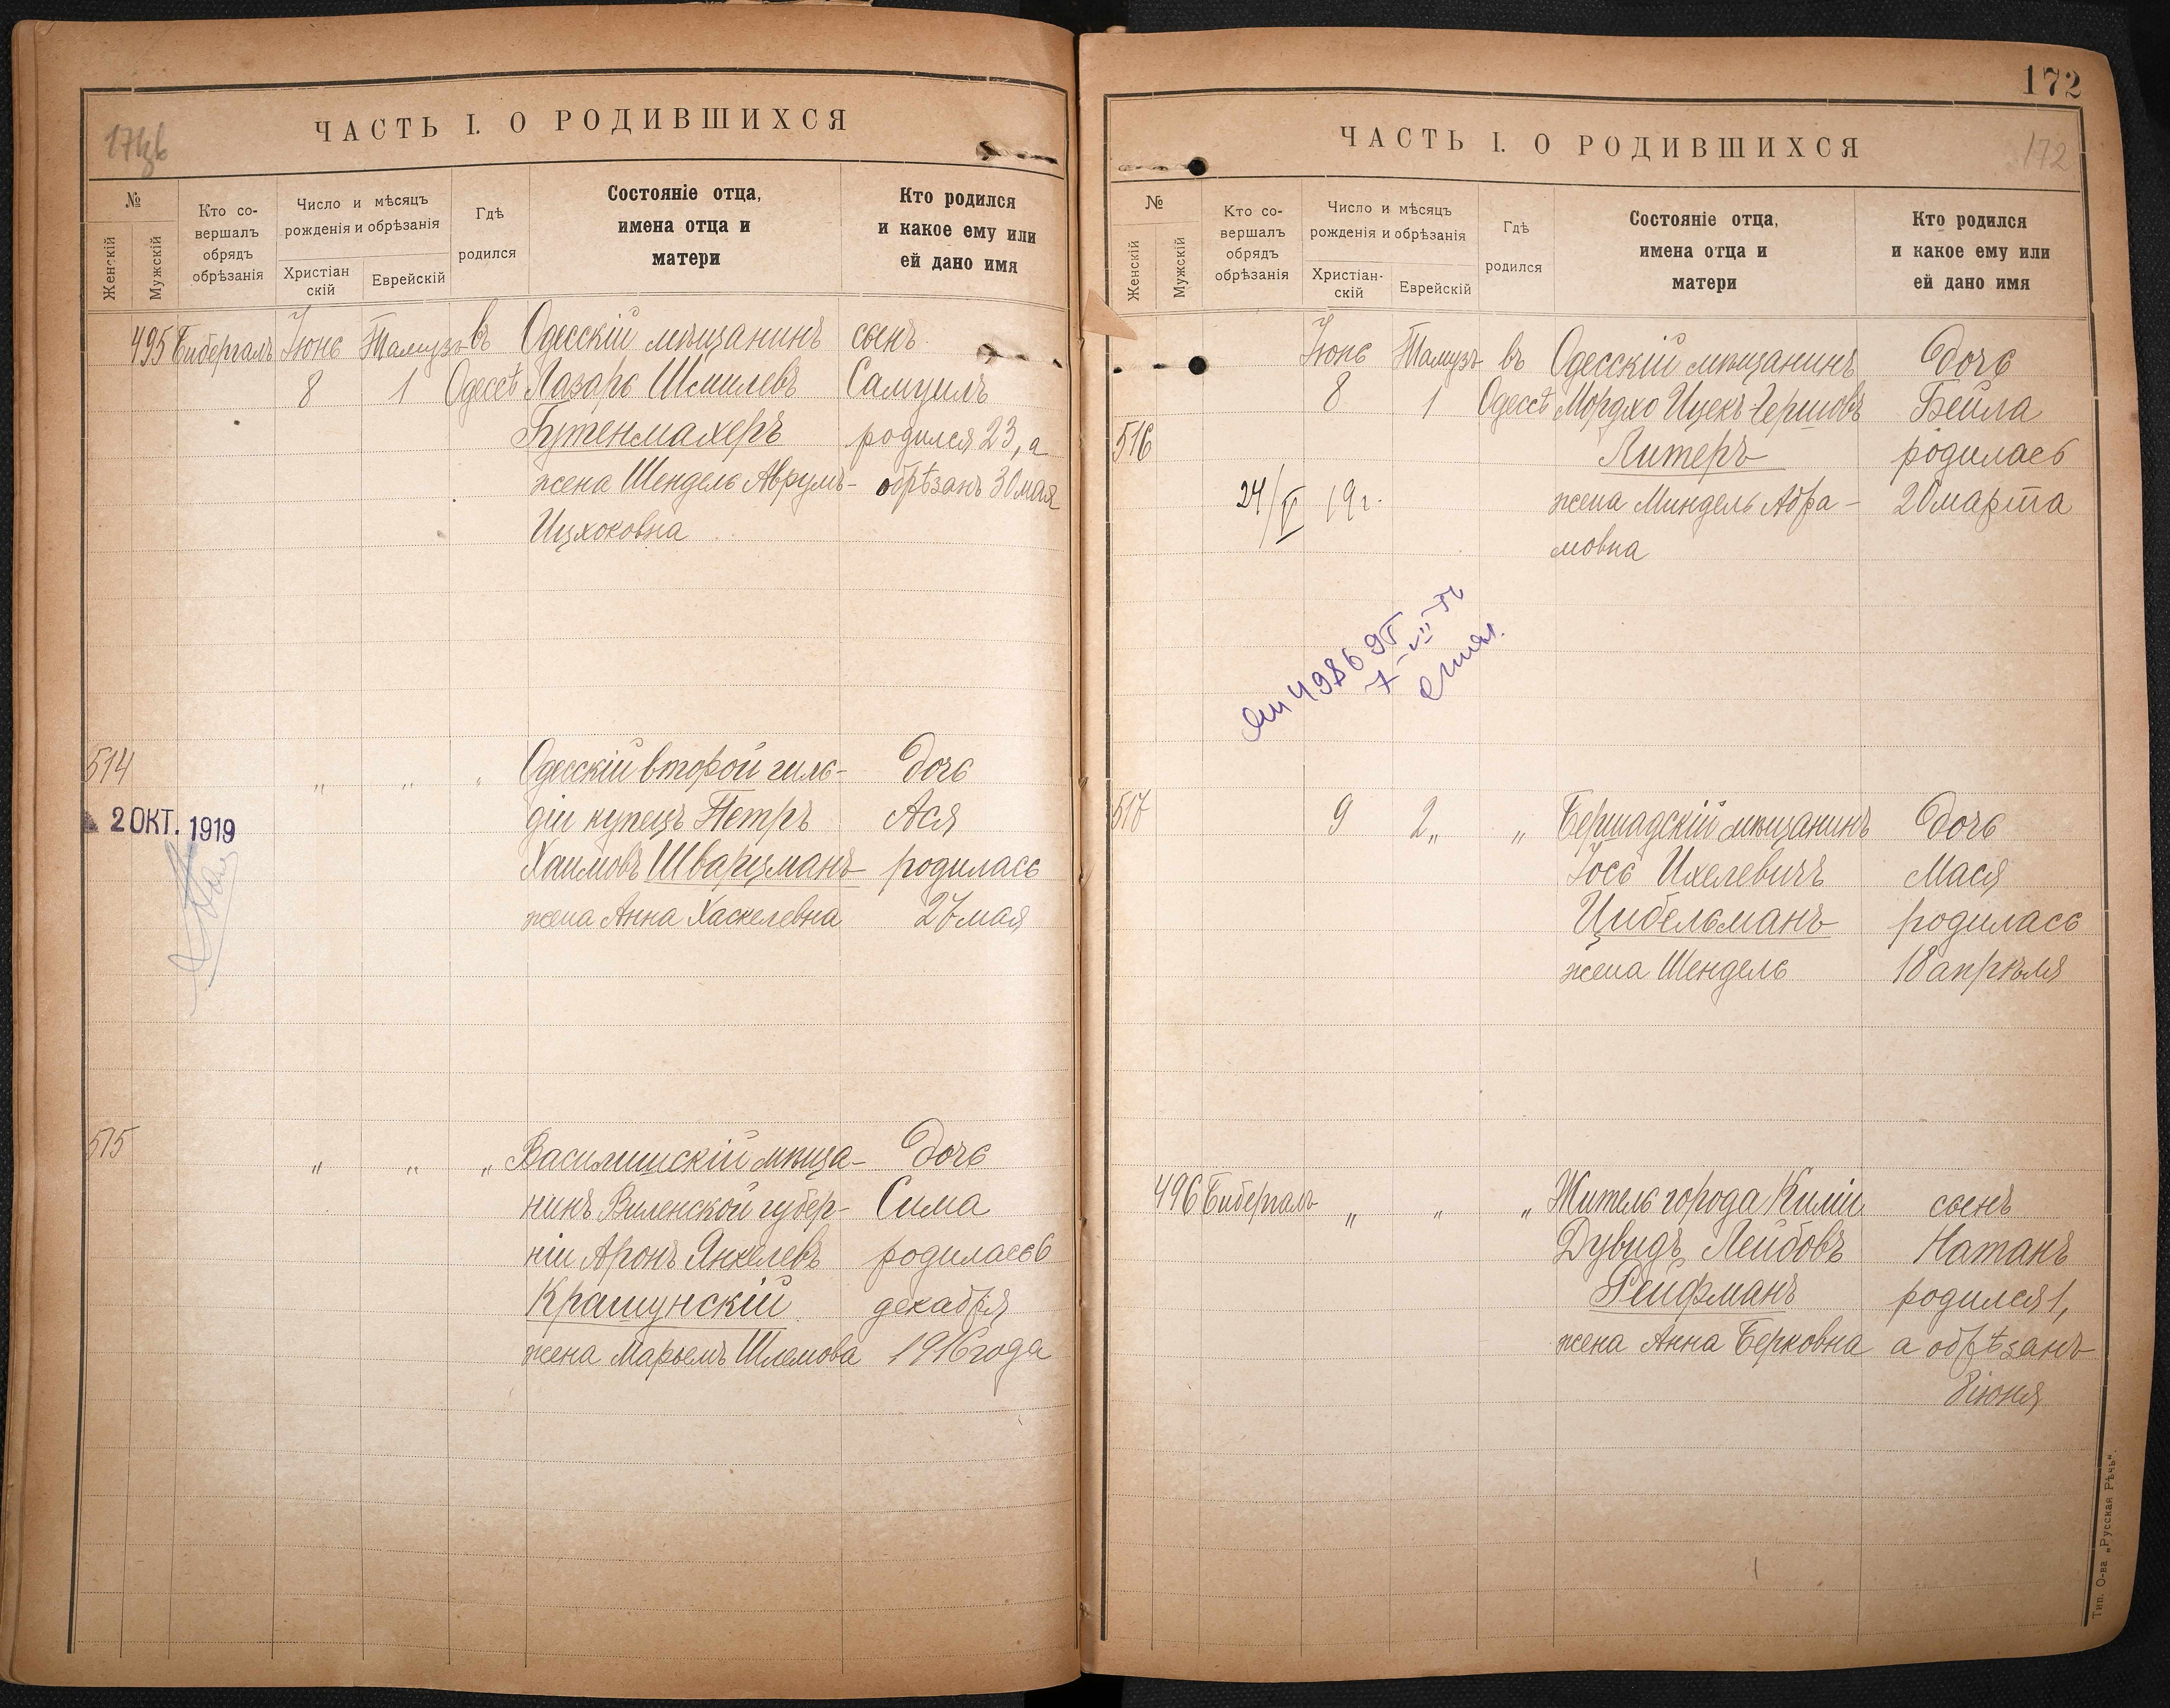 ЧАСТЬ I. О РОДИВШИХСЯ
№
Женскій
Мужскій
Кто со-
вершалъ
обрядъ
обрѣзанія
Число и мѣсяцъ
рожденія и обрѣзанія
Христіан
скій
Еврейскій
Гдѣ
родился
Состояніе отца,
имена отца и
матери
Кто родился
и какое ему или
ей дано имя
495 Бибергалъ Іюнь Тамузъ въ Одесскій мѣщанинъ сынъ
8 1 Одессѣ Лазарь Шмилевъ Самуилъ
Бутенмахеръ родился 23, а
жена Шендель Аврумъ- обрѣзанъ 30 мая
Ицхоковна
514 " " " Одесскій второй гиль- дочь
2 ОКТ. 1919
діи купецъ Петръ Ася
Хаимовъ Шварцманъ родилась
жена Анна Хаскелевна 27 мая
515 " " " Василишскій мѣща- дочь
нинъ Виленской губер- Сима
ніи Аронъ Янкелевъ родилась 6
Крашунскій декабря
жена Марьемъ Шлемова 1916 года
172
ЧАСТЬ I. О РОДИВШИХСЯ
172
№
Женскій
Мужскій
Кто со-
вершалъ
обрядъ
обрѣзанія
Число и мѣсяцъ
рожденія и обрѣзанія
Христіан-
скій
Еврейскій
Гдѣ
родился
Состояніе отца,
имена отца и
матери
Кто родился
и какое ему или
ей дано имя
Іюнь Тамузъ въ Одесскій мѣщанинъ дочь
8 1 Одессѣ Мордхо Ицекъ-Гершовъ Бейла
516 Литеръ родилась
24/V 19 г. жена Миндель Абра- 20 марта
мовна
517 9 2 " " Бершадскій мѣщанинъ дочь
Іось Ихелевичъ Мася
Цибельманъ родилась
жена Шендель 18 апрѣля
496 Бибергалъ " " " Житель города Киліи сынъ
Дувидъ Лейбовъ Натанъ
Рейфманъ родился 1,
жена Анна Берковна а обрѣзанъ
8 іюня
Тип. О-ва „Русская Рѣчь“.